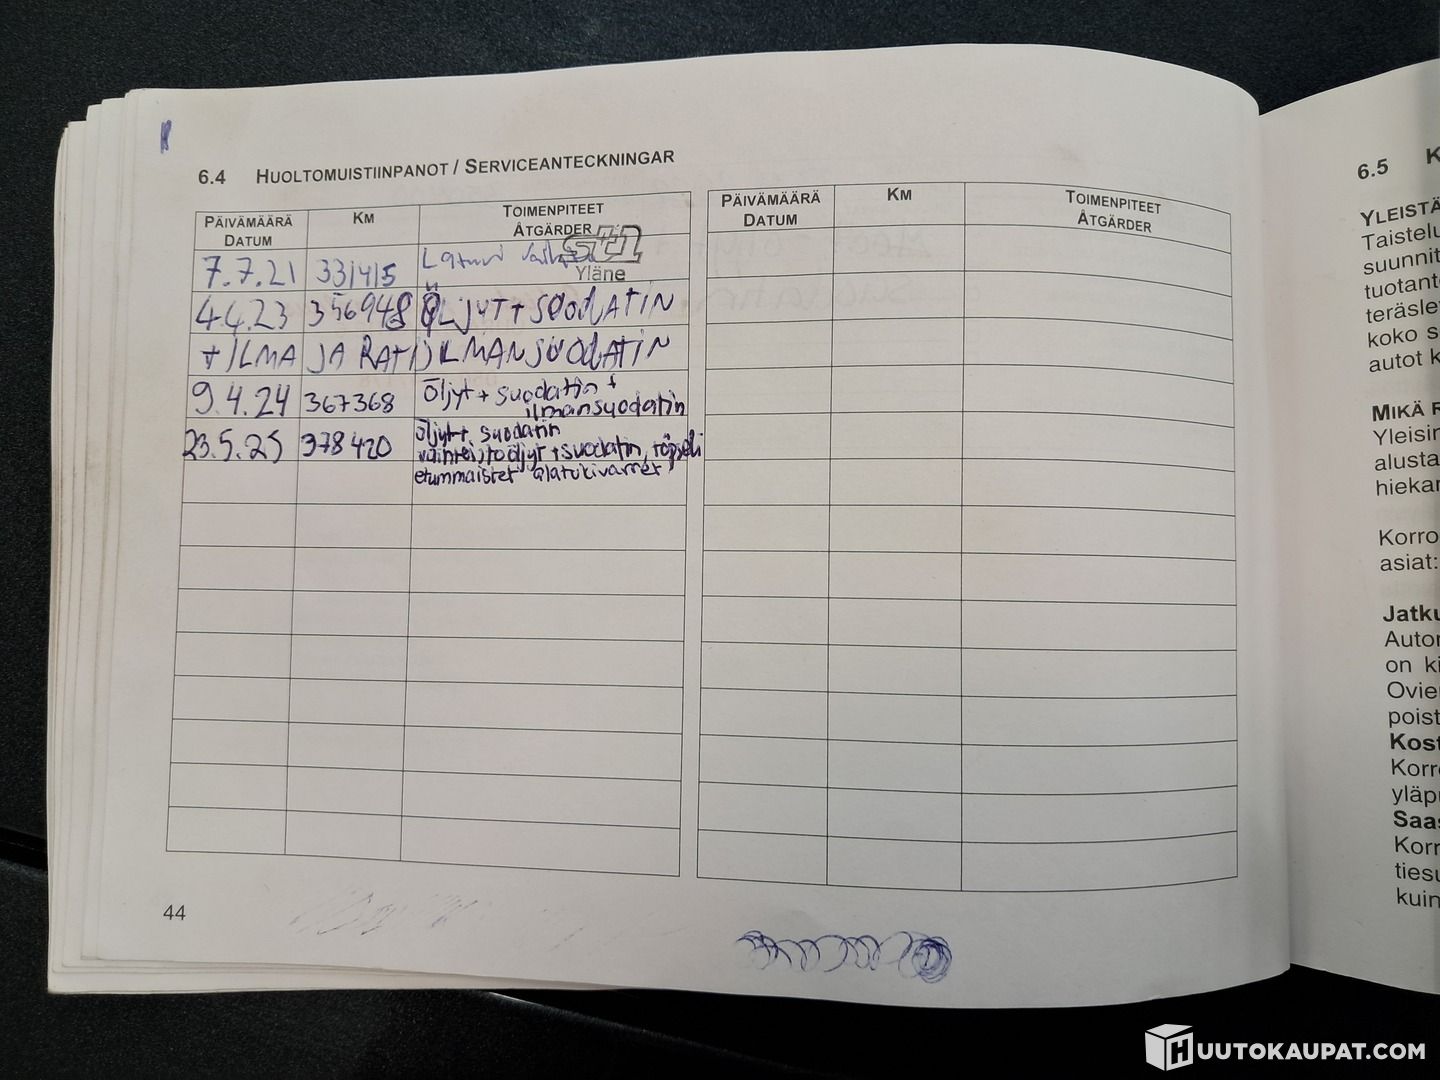 6.4 HUOLTOMUISTIINPANOT / SERVICEANTECKNINGAR
PÄIVÄMÄÄRÄ DATUM KM TOIMENPITEET ÅTGÄRDER
7.7.21 331415 Laturi
Yläne
4.4.23 356948 ÖLJYT + SUODATIN
+ ILMA JA RAITISILMANSUODATIN
9.4.24 367368 Öljyt + suodatin +
ilmansuodatin
23.5.25 378420 öljyt + suodatin
vaihteistoöljyt + suodatin, röpseli
etummaiset alatukivarret
PÄIVÄMÄÄRÄ DATUM KM TOIMENPITEET ÅTGÄRDER
44
6.5 K
YLEISTÄ
Taistelu
suunnit
tuotant
teräsle
koko s
autot k
MIKÄ R
Yleisin
alusta
hiekar
Korro
asiat:
Jatku
Auto
on ki
Ovie
poist
Kost
Korr
yläp
Saas
Korr
tiesu
kuin
HUUTOKAUPAT.COM